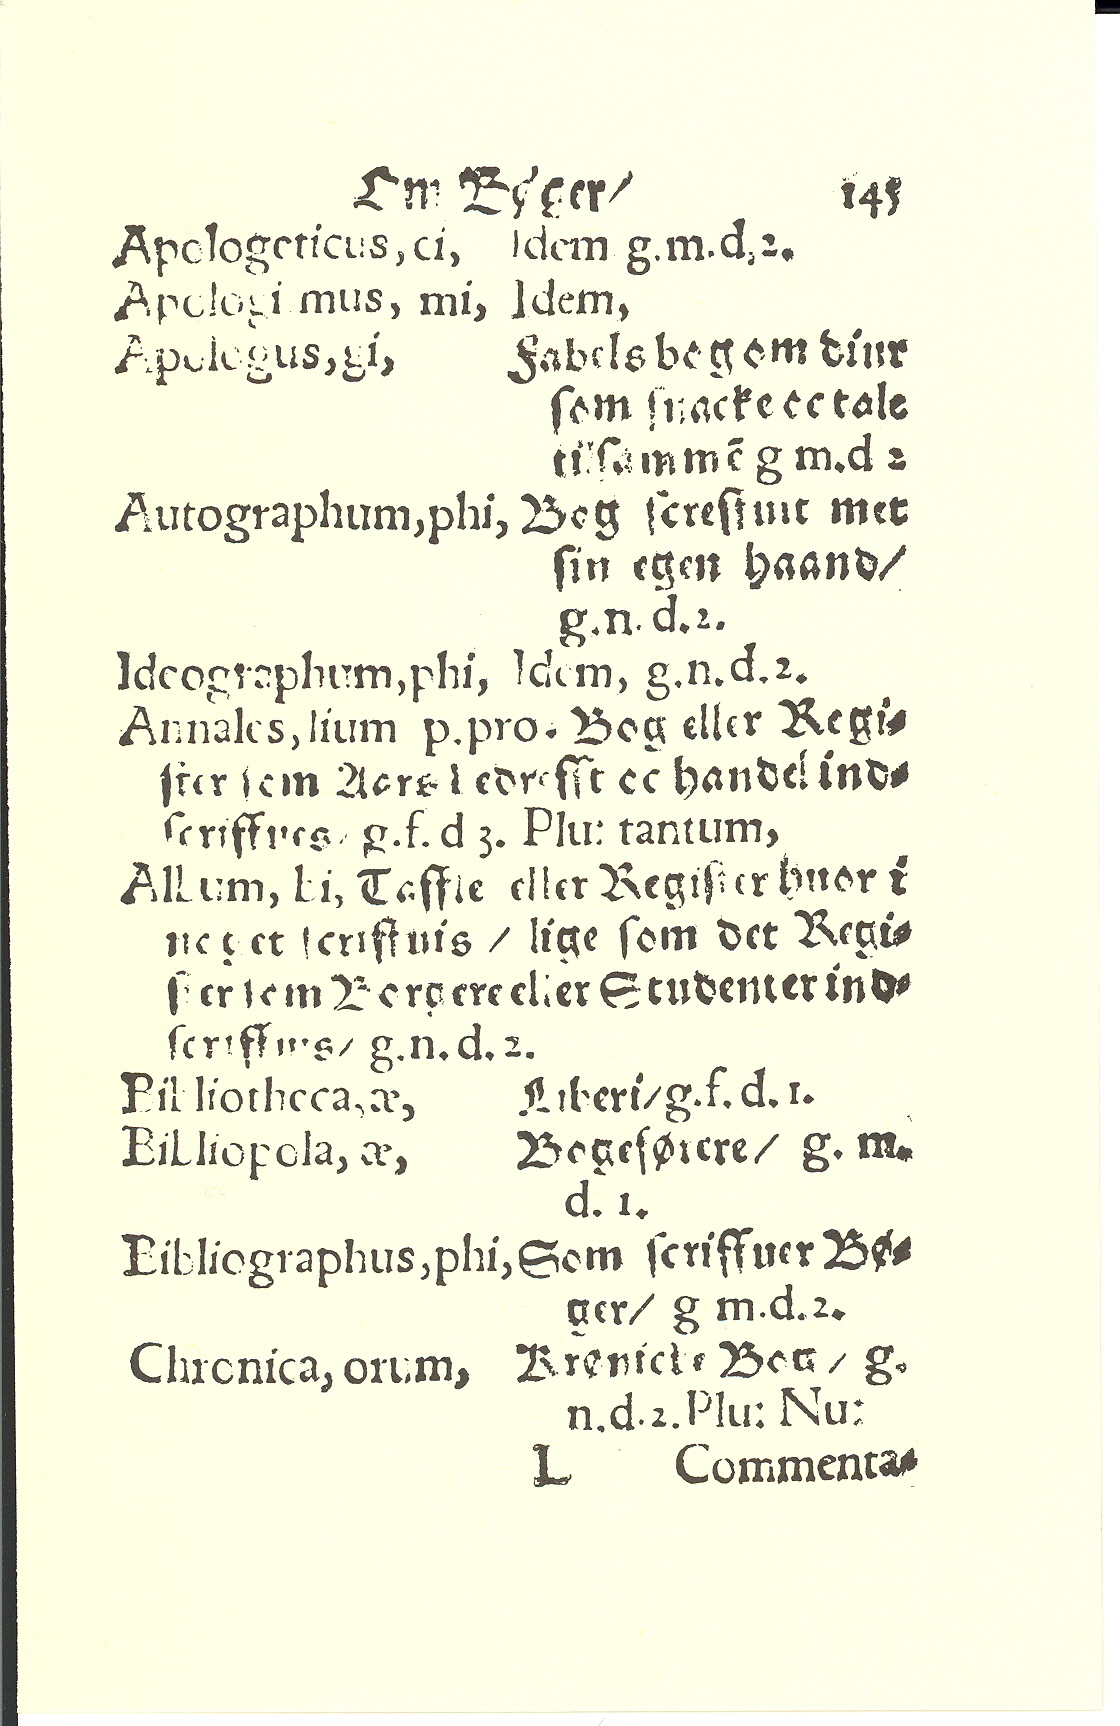 Om Bøger/ 145
Apologeticus, ci, Idem g.m.d,2.
Apologi mus, mi, Idem,
Apologus, gi, Fabels bog om diur
som snacke oc tale
tilsammē g m.d 2
Autographum, phi, Bog screffuit met
sin egen haand/
g.n. d.2.
Ideographum, phi, Idem, g.n.d.2.
Annales, lium p.pro. Bog eller Regi-
ster som Aars bedrefft oc handel ind-
scriffues/ g.f.d 3. Plu: tantum,
Album, bi, Taffle eller Register huor i
noget scriffuis / lige som det Regi-
ster som Borgere eller Studenter ind-
scriffuis/ g.n.d.2.
Bibliotheca, æ, Liberi/g.f.d.1.
Bibliopola, æ, Bogeførere/ g. m.
d. 1.
Bibliographus, phi, Som scriffuer Bø-
ger/ g m.d.2.
Chronica, orum, Krønicke Bog / g.
n.d.2.Plu: Nu:
L Commenta-